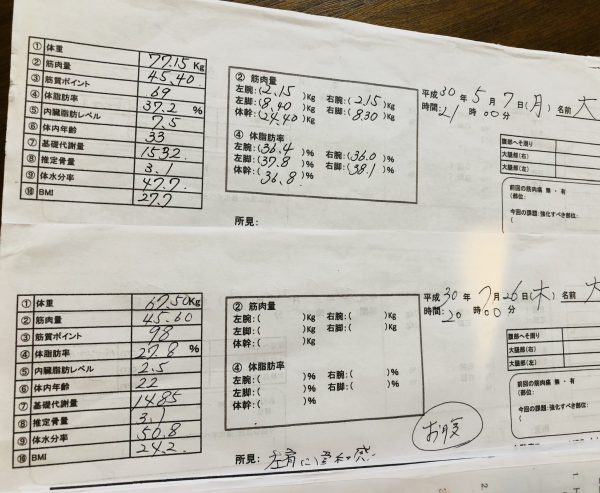 ① 体重 77.15 Kg
② 筋肉量 45.40
③ 筋質ポイント 69
④ 体脂肪率 37.2 %
⑤ 内臓脂肪レベル 7.5
⑥ 体内年齢 33
⑦ 基礎代謝量 1532
⑧ 推定骨量 3.1
⑨ 体水分率 47.7
⑩ BMI 27.7
② 筋肉量
左腕:(2.15)Kg 右腕:(2.15)Kg
左脚:(8.40)Kg 右脚:(8.30)Kg
体幹:(24.40)Kg
④ 体脂肪率
左腕:(36.4)% 右腕:(36.0)%
左脚:(37.8)% 右脚:(38.1)%
体幹:(36.8)%
所見:
平成 30 年 5 月 7 日(月) 名前 大
時間:21 時 00 分
腹部へそ周り
大腿部(右)
大腿部(左)
前回の筋肉痛 無 ・ 有
(部位:
今回の課題:強化すべき部位:
(
① 体重 67.50 Kg
② 筋肉量 45.60
③ 筋質ポイント 98
④ 体脂肪率 27.8 %
⑤ 内臓脂肪レベル 2.5
⑥ 体内年齢 22
⑦ 基礎代謝量 1485
⑧ 推定骨量 3.1
⑨ 体水分率 50.8
⑩ BMI 24.2
② 筋肉量
左腕:( )Kg 右腕:( )Kg
左脚:( )Kg 右脚:( )Kg
体幹:( )Kg
④ 体脂肪率
左腕:( )% 右腕:( )%
左脚:( )% 右脚:( )%
体幹:( )%
お腹
所見: 左肩に違和感
平成 30 年 7 月 26 日(木) 名前
時間:20 時 00 分
腹部へそ周り
大腿部(右)
大腿部(左)
前回の筋肉痛 無 ・ 有
(部位:
今回の課題:強化すべき部位:
(